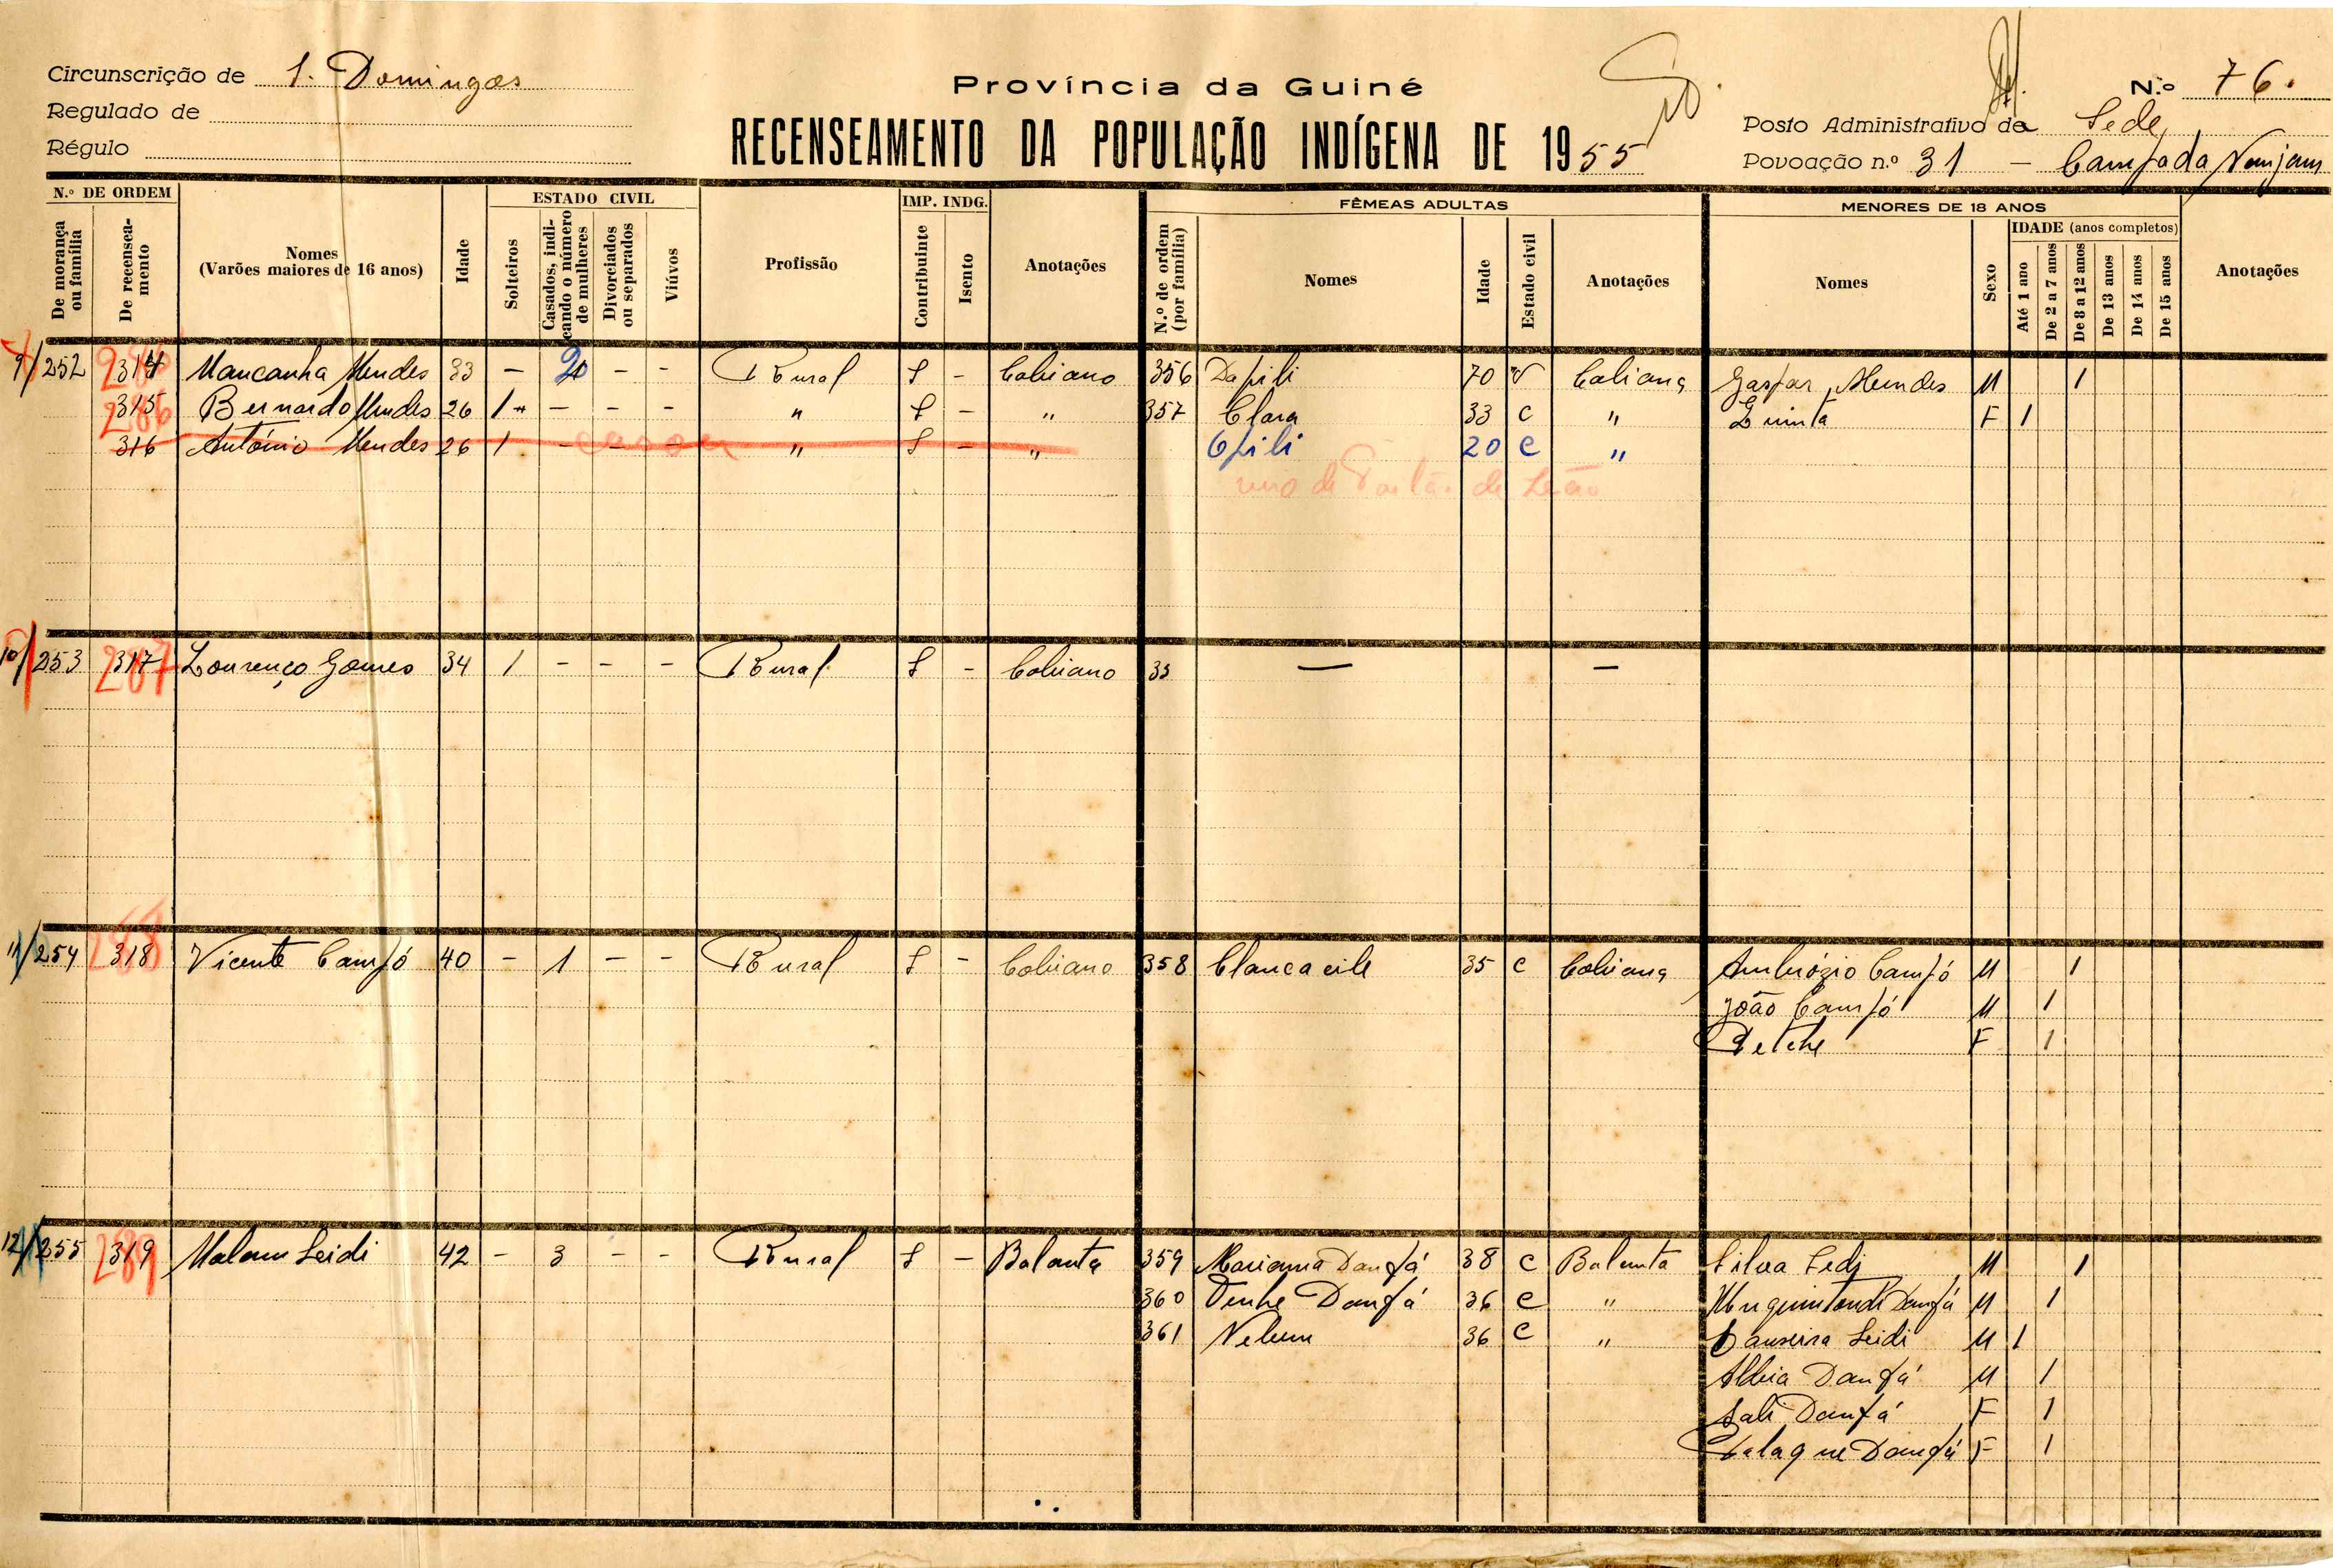 Circunscrição de S. Domingos
Regulado de
Régulo
Província da Guiné
RECENSEAMENTO DA POPULAÇÃO INDÍGENA DE 1955
N.º 76.
Posto Administrativo da Sede
Povoação n.º 31 - Campada Namjam
N.º DE ORDEM
De morança ou família
De recensea-mento
Nomes
(Varões maiores de 16 anos)
Idade
ESTADO CIVIL
Solteiros
Casados, indi-cando o número de mulheres
Divorciados ou separados
Viúvos
Profissão
IMP. INDG.
Contribuinte
Isento
Anotações
FÊMEAS ADULTAS
N.º de ordem (por família)
Nomes
Idade
Estado civil
Anotações
MENORES DE 18 ANOS
Nomes
Sexo
IDADE (anos completos)
Até 1 ano
De 2 a 7 anos
De 8 a 12 anos
De 13 anos
De 14 anos
De 15 anos
Anotações
9/252 314 Mancanha Mendes 33 - 2 - - Rural S - Cobiano 356 Dapili 70 V Cobiana Gaspar Mendes M 1
286 315 Bernardo Mendes 26 1 - - - " S - " 357 Clara 33 C " Quinta F 1
316 António Mendes 26 1 - - - " S - " Opili 20 C "
10/253 317 287 Lourenço Gomes 34 1 - - - Rural S - Cobiano 35 — —
11/254 318 288 Vicente Campó 40 - 1 - - Rural S - Cobiano 358 Clancacile 35 C Cobiana Ambrózio Campó M 1
João Campó M 1
Petche F 1
12/255 319 289 Malam Seidi 42 - 3 - - Rural S - Balanta 359 Mariama Danfá 38 C Balanta Silva Sedi M 1
360 Tenhe Danfá 36 C " Danfá M 1
361 Nelum 36 C " Seidi M 1
Danfá M 1
Sali Danfá F 1
Danfá F 1